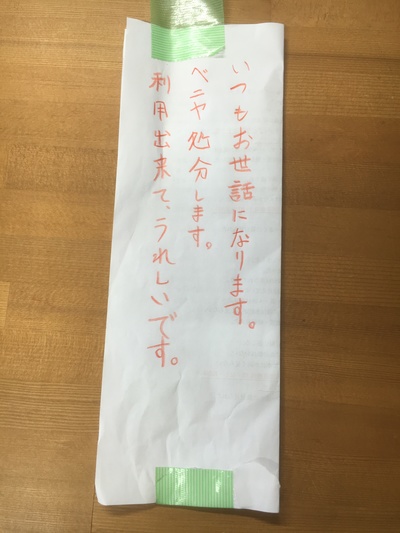 いつもお世話になります。
ベニヤ処分します。
利用出来て、うれしいです。